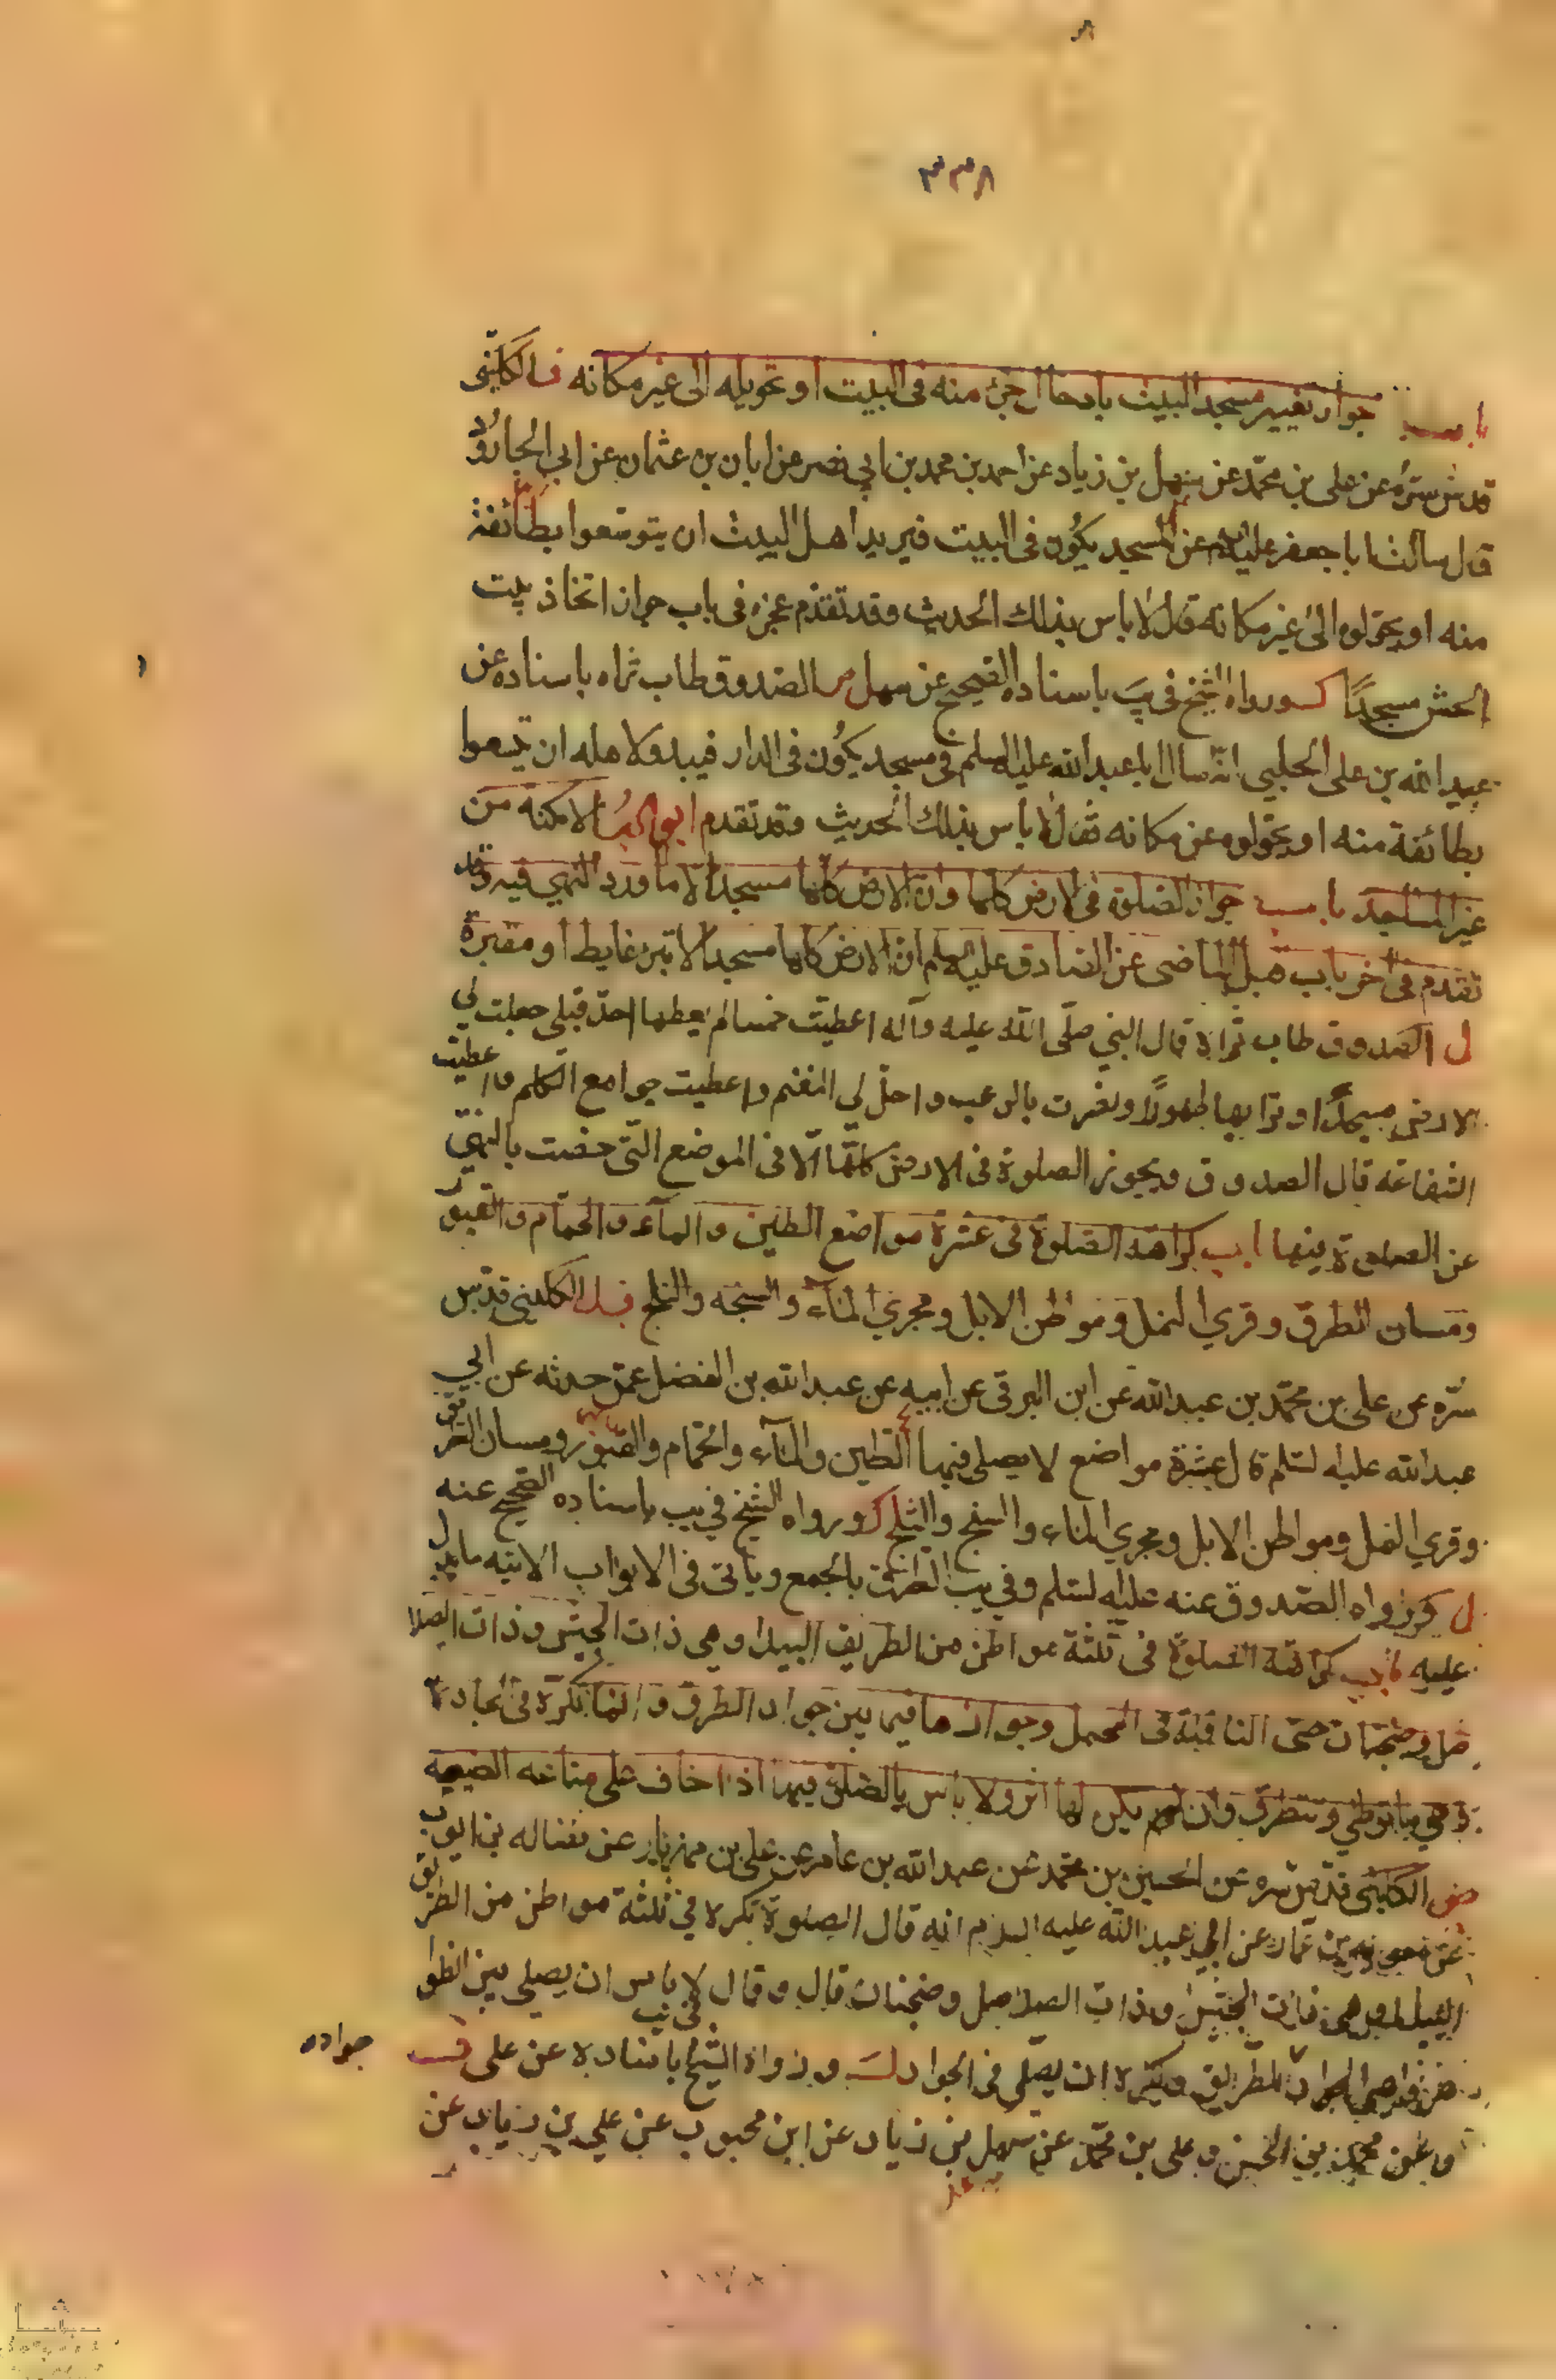 ٣٣٨
باب جواز تغيير مسجد البيت بادخال جزء منه فى البيت او تحويله الى غير مكانه الكلينى
قدس سره عن على بن محمد عن سهل بن زياد عن احمد بن محمد بن ابي نصر عن ابان بن عثمان عن ابي الجارود
قال سالت ابا جعفر عليه السلم عن المسجد يكون فى البيت فيريد اهل البيت ان يتوسعوا بطائفة
منه او يحولوه الى غير مكانه قال لا باس بذلك الحديث وقد تقدم عجزه فى باب جواز اتخاذ بيت
الحش مسجدًا ورواه الشيخ فى يب باسناده الصحيح عن سهل الصدوق طاب ثراه باسناده عن
عبيد الله بن على الحلبي انه سال ابا عبد الله عليه السلم فى مسجد يكون فى الدار فيبدو لاهله ان يتوسعوا
بطائفة منه او يحولوه عن مكانه فقال لا باس بذلك الحديث وقد تقدم ابواب الامكنة من
غير المساجد باب جواز الصلوة فى الارض كلها وان الارض كلها مسجد الا ما ورد النهي فيه وقد
تقدم فى اخر باب قبل الماضى عن الصادق عليه السلم ان الارض كلها مسجد الا بئر غايط او مقبرة
ل الصدوق طاب ثراه قال النبي صلى الله عليه وآله اعطيت خمسا لم يعطها احد قبلى جعلت لي
الارض مسجدًا وترابها طهورًا ونصرت بالرعب واحل لي المغنم واعطيت جوامع الكلم واعطيت
الشفاعة قال الصدوق ويجوز الصلوة فى الارض كلها الا فى الموضع التى خصت بالنهي
عن الصلوة فيها باب كراهة الصلوة فى عشرة مواضع الطين والماء والحمام والقبور
ومسان الطرق وقري النمل ومواطن الابل ومجري الماء والسبخة والثلج الكليني قدس
سره عن على بن محمد بن عبد الله عن ابن البرقى عن ابيه عن عبد الله بن الفضل عمن حدثه عن ابي
عبد الله عليه لسلم قال عشرة مواضع لا يصلى فيها الطين والماء والحمام والقبور ومسان الطريق
وقري النمل ومواطن الابل ومجري الماء والسبخ والثلج ورواه الشيخ في يب باسناده الصحيح عنه
ل ورواه الصدوق عنه عليه لسلم وفي يب الطرق بالجمع وياتى فى الابواب الاتيه ما يدل
عليه باب كراهة الصلوة فى ثلثة مواطن من الطريق البيدا وهي ذات الجيش وذات الصلا
صل وضجنان حتى النافلة فى المحمل وجوازها فيما بين جواد الطرق وانما تكره فى الجادة
وهي ما توطى وتتطرق وان لم يكن لها اثر ولا باس بالصلوة فيها اذا خاف على متاعه الضيعه
الكلينى قدس سره عن الحسين بن محمد عن عبد الله بن عامر عن على بن مهزيار عن فضاله بن ايوب
عن معويه بن عمار عن ابي عبد الله عليه السلام انه قال الصلوة تكره في ثلثة مواطن من الطريق
البيدا وهي ذات الجيش وذات الصلاصل وضجنان قال وقال لا باس ان يصلي بين الظوا
هر وهي الجواد الطريق ويكره ان يصلى فى الجواد ورواه الشيخ فى يب باسناده عن على
جواده
وعن محمد بن الحسن وعلى بن محمد عن سهل بن زياد عن ابن محبوب عن علي بن زياد عن